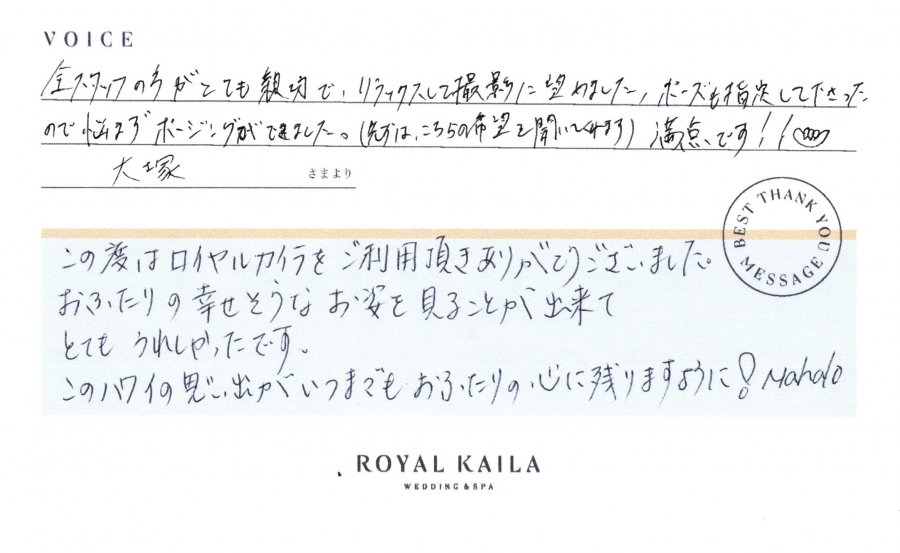 VOICE
全スタッフの方がとても親切で、リラックスして撮影に望めました、ポーズも指定して下さった
ので悩まずポージングができました。(先ずは、こちらの希望を聞いてくれます) 満点です!!
大塚 さまより
BEST THANK YOU MESSAGE
この度はロイヤルカイラをご利用頂きありがとうございました。
おふたりの幸せそうなお姿を見ることが出来て
とても うれしかったです。
このハワイの思い出がいつまでもおふたりの心に残りますように! Mahalo
ROYAL KAILA
WEDDING & SPA